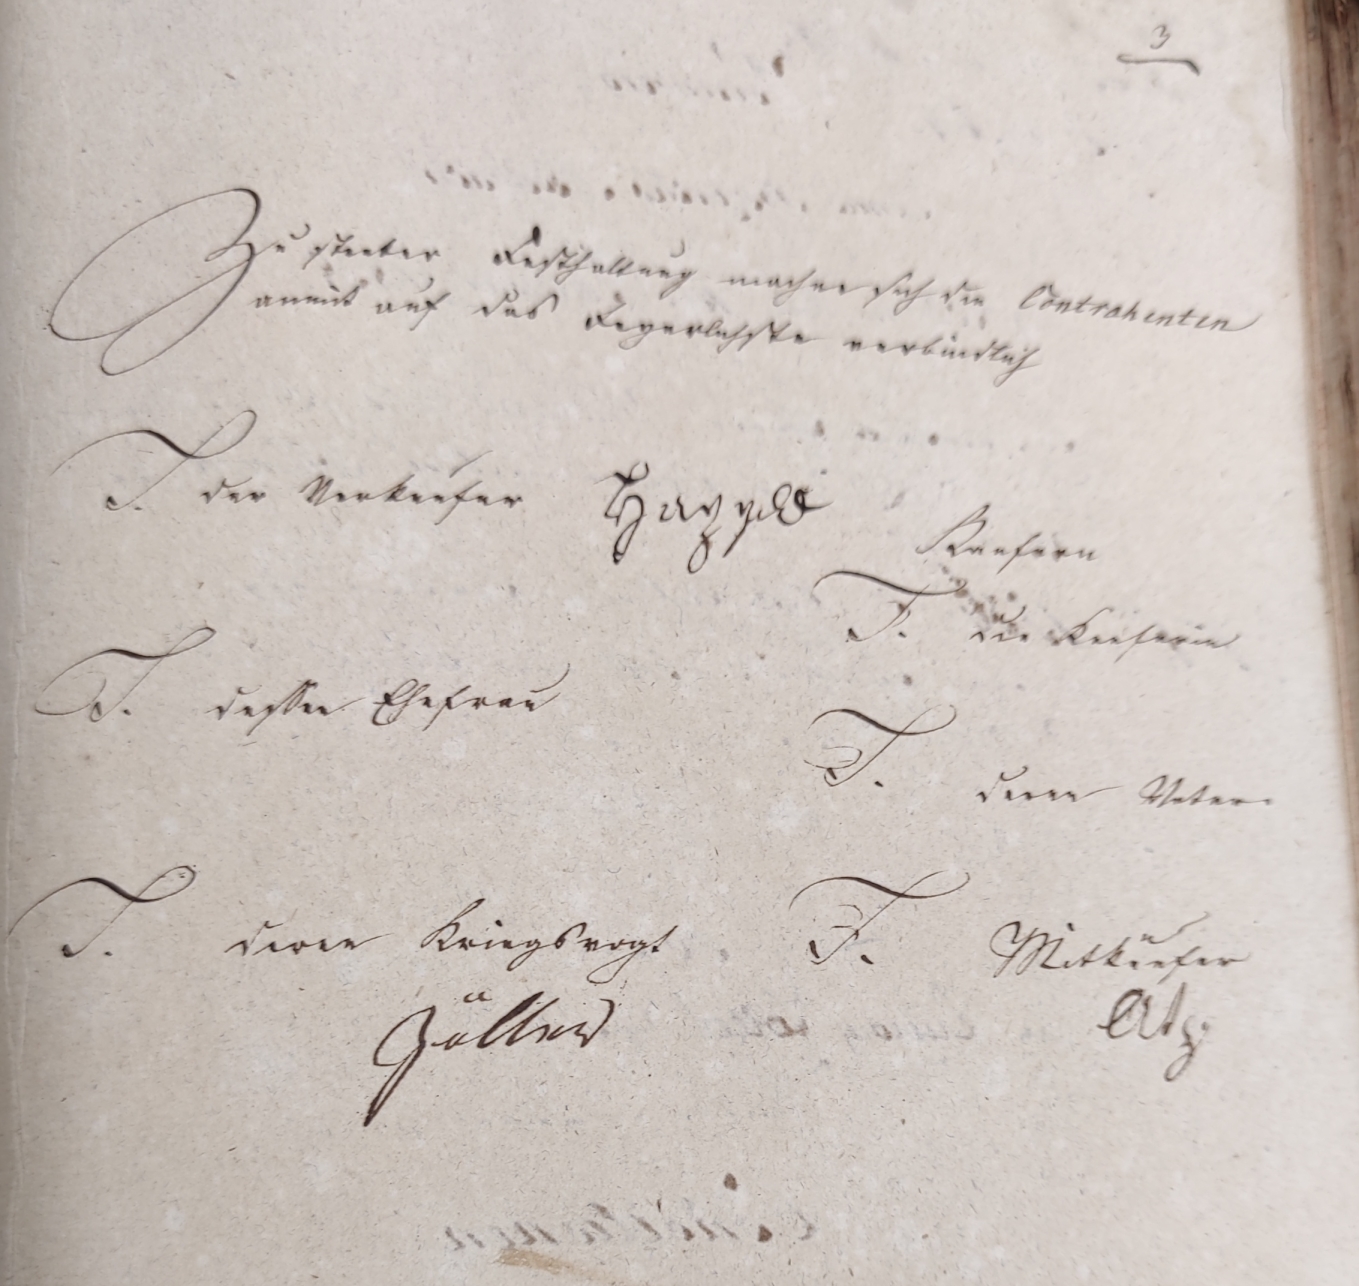 3
Zu steeter Festhaltung machen sich die Contrahenten
anmit auf das Feyerlichste verbindlich
T. der Verkäufer
Kaufern
T. die Käuferin
T. dessen Ehefrau
T. deren Vater.
T. deren Kriegsvogt
T. Mitkäufer
Zöller
Atz